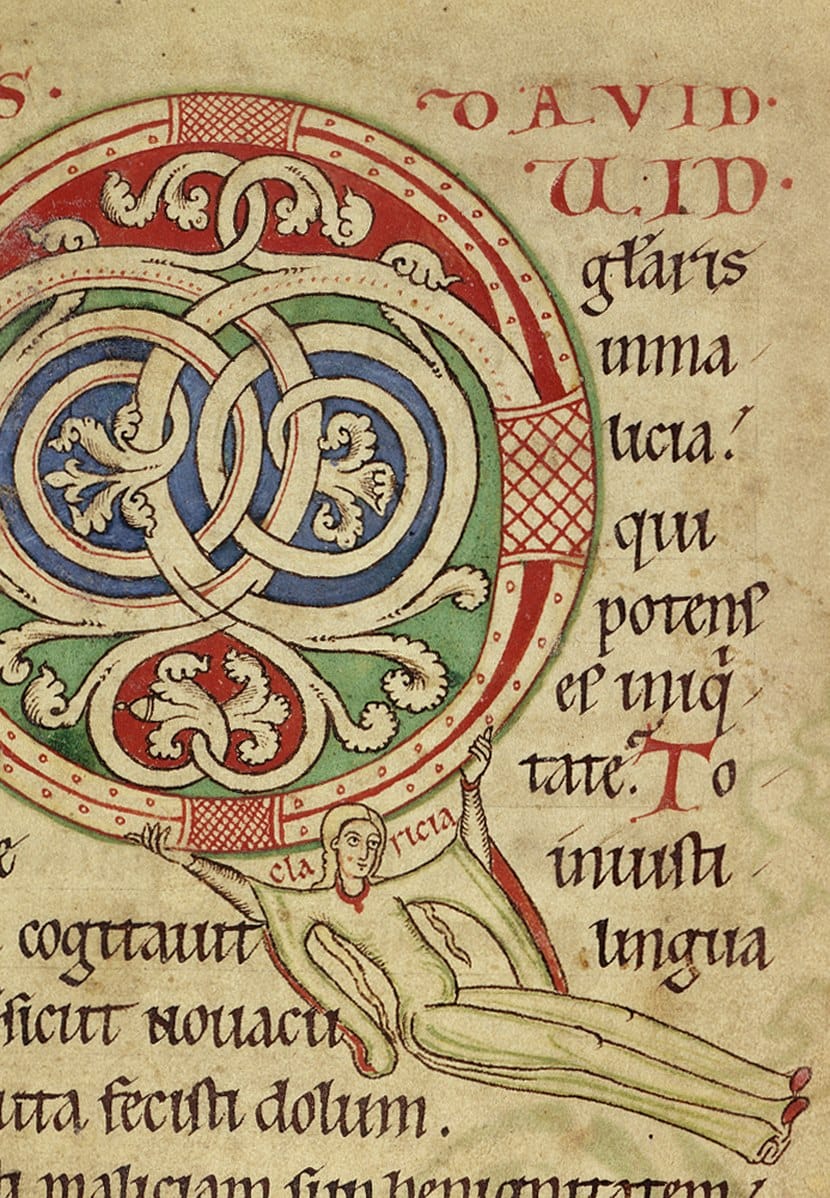 S. DAVID.
.UID.
gl̄aris
inma
licia:
qui
potens
es iniqͥ
tate. To
cla ricia
e iniusti
cogitauit lingua
sicut nouacu
uta fecisti dolum.
maliciam sup benignitatem